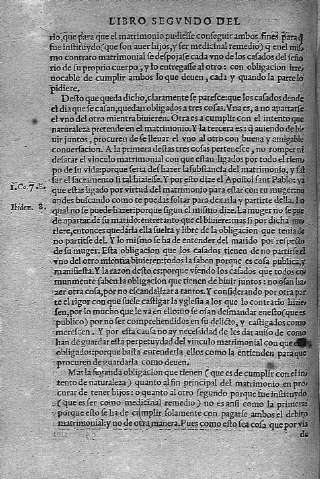 LIBRO SEGVNDO DEL
rio, que para que el matrimonio pudiesse conseguir ambos fines para
fue instituydo (que son auer hijos, y ser medicinal remedio) q enel mis
mo contrato matrimonial se despojasse cada vno de los casados del seño
rio de su proprio cuerpo, y lo entregasse al otro: con obligacion irre
uocable de cumplir ambos lo que deuen, cada y quando la parte lo
pidiere.
Desto que queda dicho, claramente se paresce: que los casados dende
el dia que se casan, quedan obligados a tres cosas. Vna es, a no apartarse
el vno del otro mientra biuieren. Otra es a cumplir con el intento que
naturaleza pretende en el matrimonio. Y la tercera es: q auiendo de biuir
juntos, procuren de se lleuar el vno al otro con buena y amigable
conuersacion. A la primera destas tres cosas pertenesce, no romper ni
desatar el vinculo matrimonial con que estan ligados por todo el tiempo
de su vida: porque seria deshazer la substancia del matrimonio, y
ser el sacramento si tal hiziesse. Y por esso dize el Apostol sant Pablo:
1. Co. 7.
que estas ligado por virtud del matrimonio para estar con tu muger no
andes buscando como te puedas soltar para dexarla y partirte della. Lo
Ibidem.
qual no se puede hazer: porque segun el mismo dize. La muger no se puede
apartar de su marido: entretanto que el biuiere: mas si por dicha
riere, entonces quedarla ella suelta y libre de la obligacion que tenia de
no partirse del. Y lo mismo se ha de entender del marido por respecto
de su muger. Esta obligacion que los casados tienen de no partirse el
vno del otro mientra biuieren: todos la saben porque es cosa publica, y
manifiesta. Y la razon desto es: porque viendo los casados que todos co
munmente saben la obligacion que tienen de biuir juntos: no osan ha
zer otra cosa, por no escandalizar a tantos. Y considerando por otra par
te el rigor con que suele castigar la yglesia a los que lo contrario hizies
sen, por lo mucho que le va en ello: no se osan desmandar enesto (que es
publico) por no ser comprehendidos en su delicto, y castigados como
merescen. Y por esta causa no ay necesidad de les dar auiso de como
han de guardar esta perpetuydad del vinculo matrimonial con que
obligados: porque basta entenderla ellos como la entienden para que
procuren de guardarla como deuen.
Mas la segunda obligacion que tienen (que es de cumplir con el in
tento de naturaleza) quanto al fin principal del matrimonio en pro
curar de tener hijos: o quanto al otro segundo porque fue instituydo
(que es ser como medicinal remedio) no es ansi como la primera
porque esto se ha de cumplir solamente con pagarse ambos el debito
matrimonial: y no de otra manera. Pues como esto sea cosa que por via
de